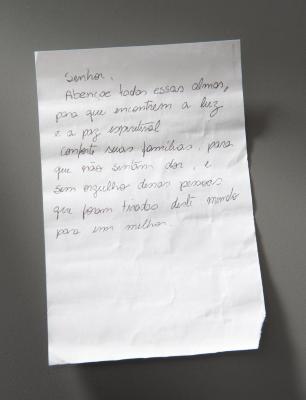 Senhor,
Abençoe todas essas almas,
para que encontrem a luz
e a paz espiritual
conforte suas famílias, para
que não sintam dor, e
sem orgulho dessas pessoas
que foram tiradas deste mundo
para um melhor.